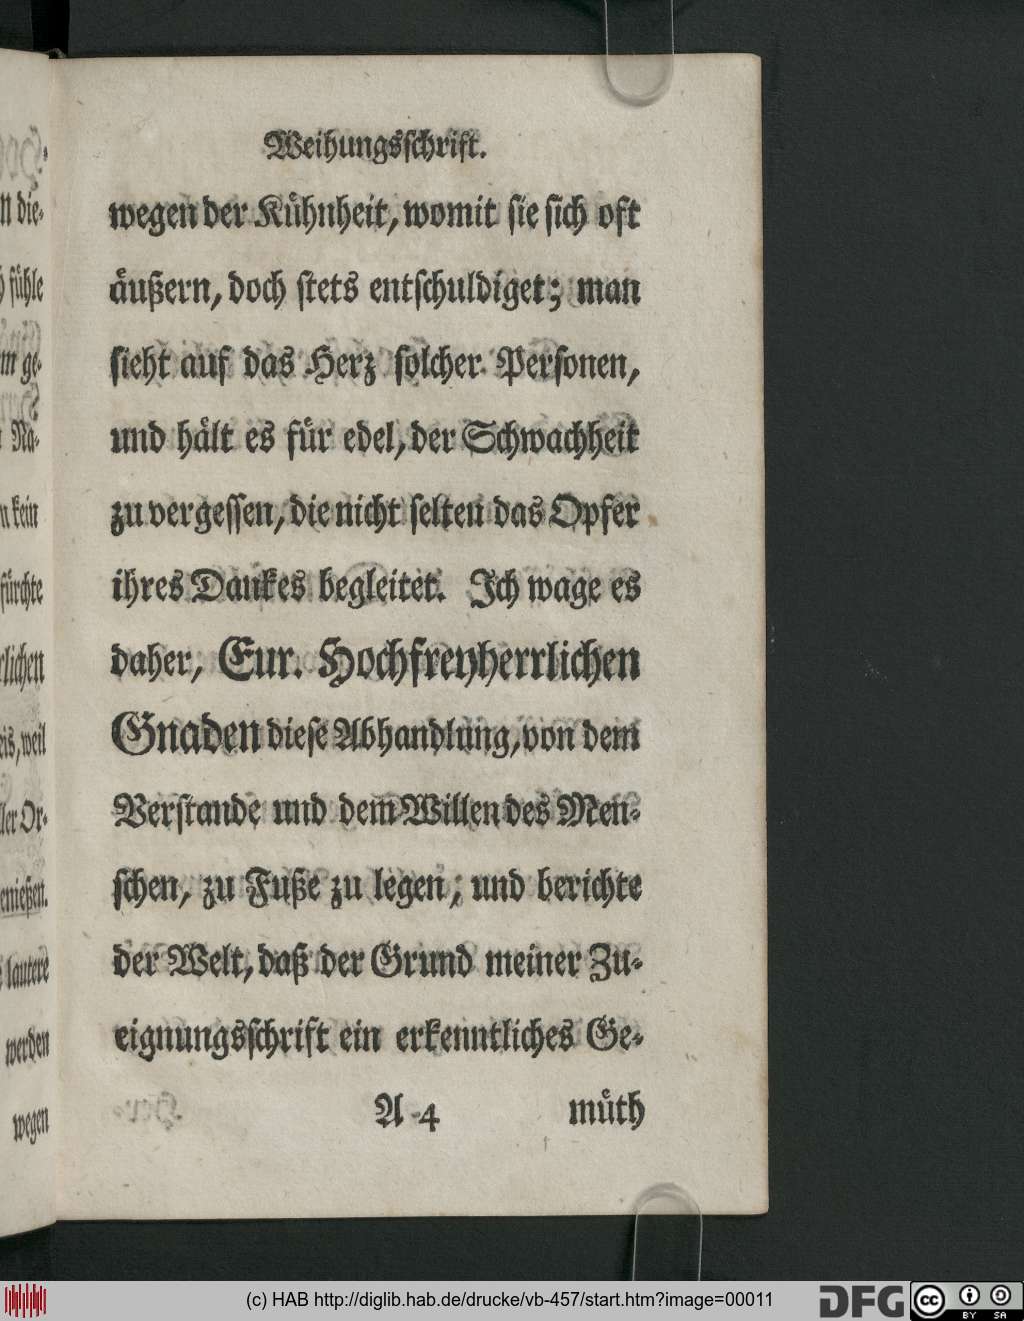 Weihungsschrift.
wegen der Kühnheit, womit sie sich oft
äußern, doch stets entschuldiget; man
sieht auf das Herz solcher Personen,
und hält es für edel, der Schwachheit
zu vergessen, die nicht selten das Opfer
ihres Dankes begleitet. Ich wage es
daher, Eur. Hochfreyherrlichen
Gnaden diese Abhandlung, von dem
Verstande und dem Willen des Men-
schen, zu Fuße zu legen; und berichte
der Welt, daß der Grund meiner Zu-
eignungsschrift ein erkenntliches Ge-
A 4 müth
die-
fühle
ge-
Na-
kein
fürchte
lichen
weil
Or-
nießen.
lautere
werden
wegen
(c) HAB http://diglib.hab.de/drucke/vb-457/start.htm?image=00011
DFG
cc BY SA